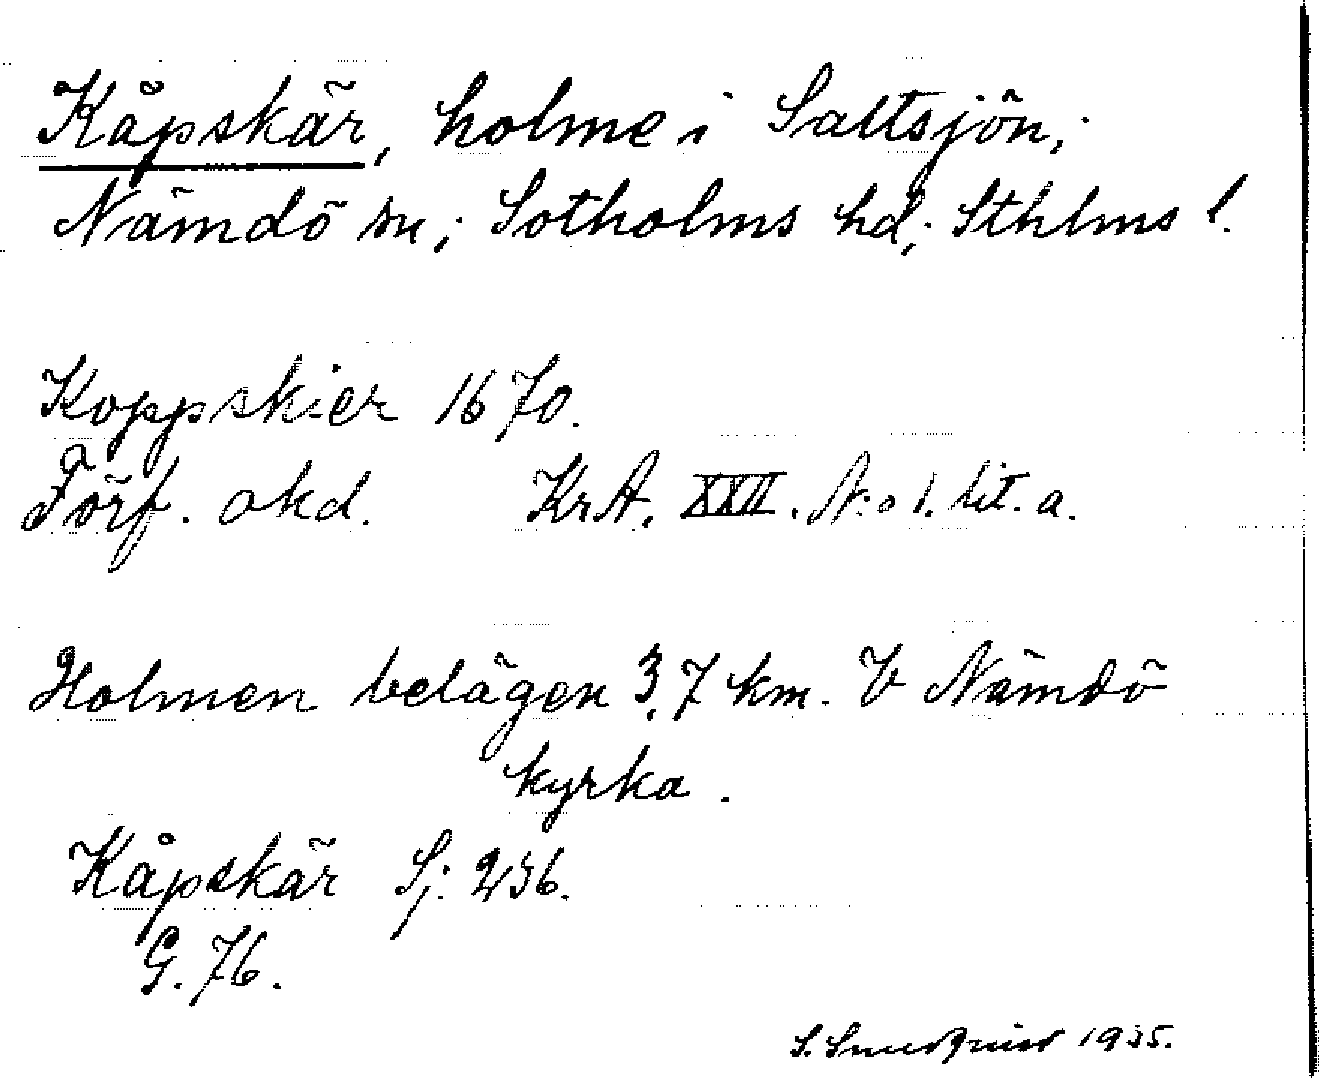 Kåpskär, holme i Saltsjön,
Nämdö sn, Sotholms hd, Sthlms l.
Koppskier 1670.
Förf. okd. KrA. XXII. N:o 1. lit. a.
Holmen belägen 3,7 km. V Nämdö
kyrka.
Kåpskär Sj. 236.
G. 76.
S. 1935.